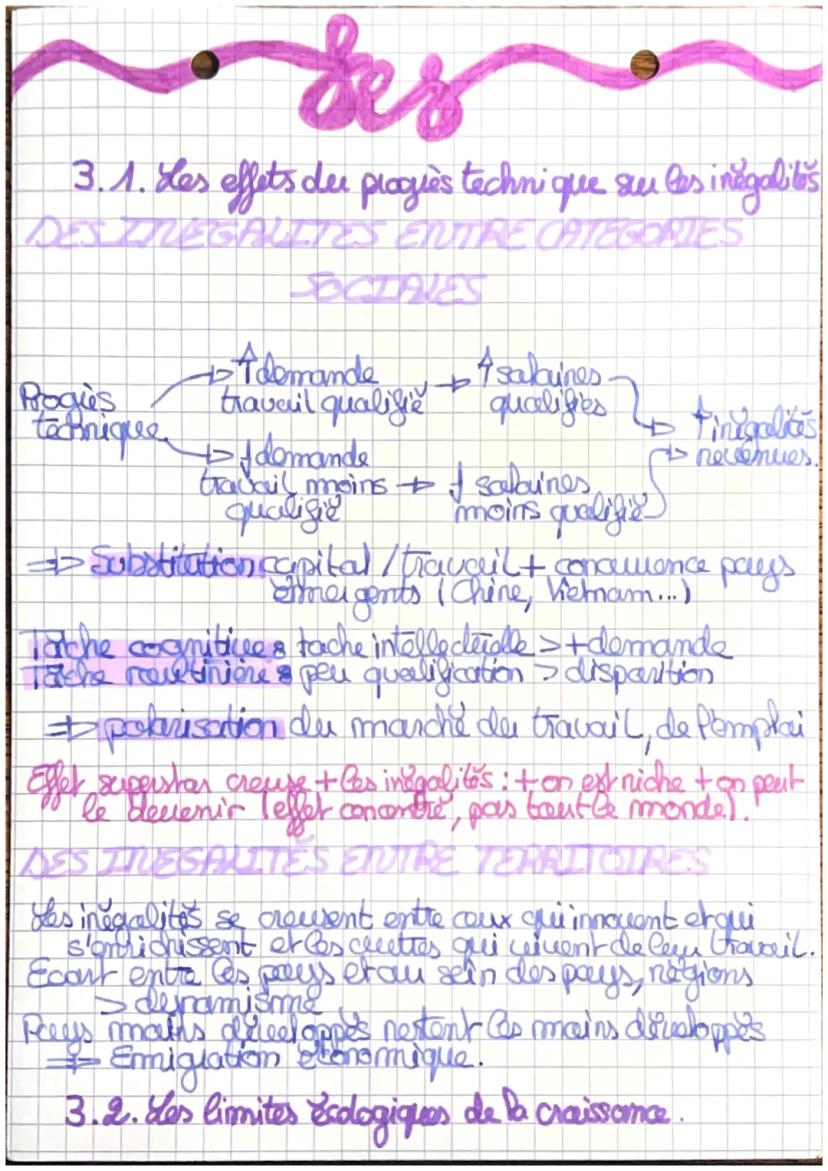 Ses
3.1. Les effets du progrès technique sur les inégalités
DES INEGALITES ENTRE CATEGORIES
SOCIALES
Progrès technique
↑ demande travail qualifié → ↑ salaires qualifiés
↓ demande travail moins qualifié → ↓ salaires moins qualifié
↑ inégalités revenues.
⇒ Substitution capital / travail + concurrence pays
émergents (Chine, Vietnam...)
Tâche cognitive : tache intellectuelle > + demande
Tâche routinière : peu qualification > disparition
⇒ polarisation du marché du travail, de l'emploi
Effet superstar creuse + les inégalités : + on est riche + on peut
le devenir (effet concentré, pas tout le monde).
DES INEGALITÉS ENTRE TERRITOIRES
Les inégalités se creusent entre ceux qui innovent et qui
s'enrichissent et les autres qui vivent de leur travail.
Ecart entre les pays et au sein des pays, régions
> dynamisme
Pays moins développés restent les moins développés
⇒ Emigration économique.
3.2. Les limites écologiques de la croissance.